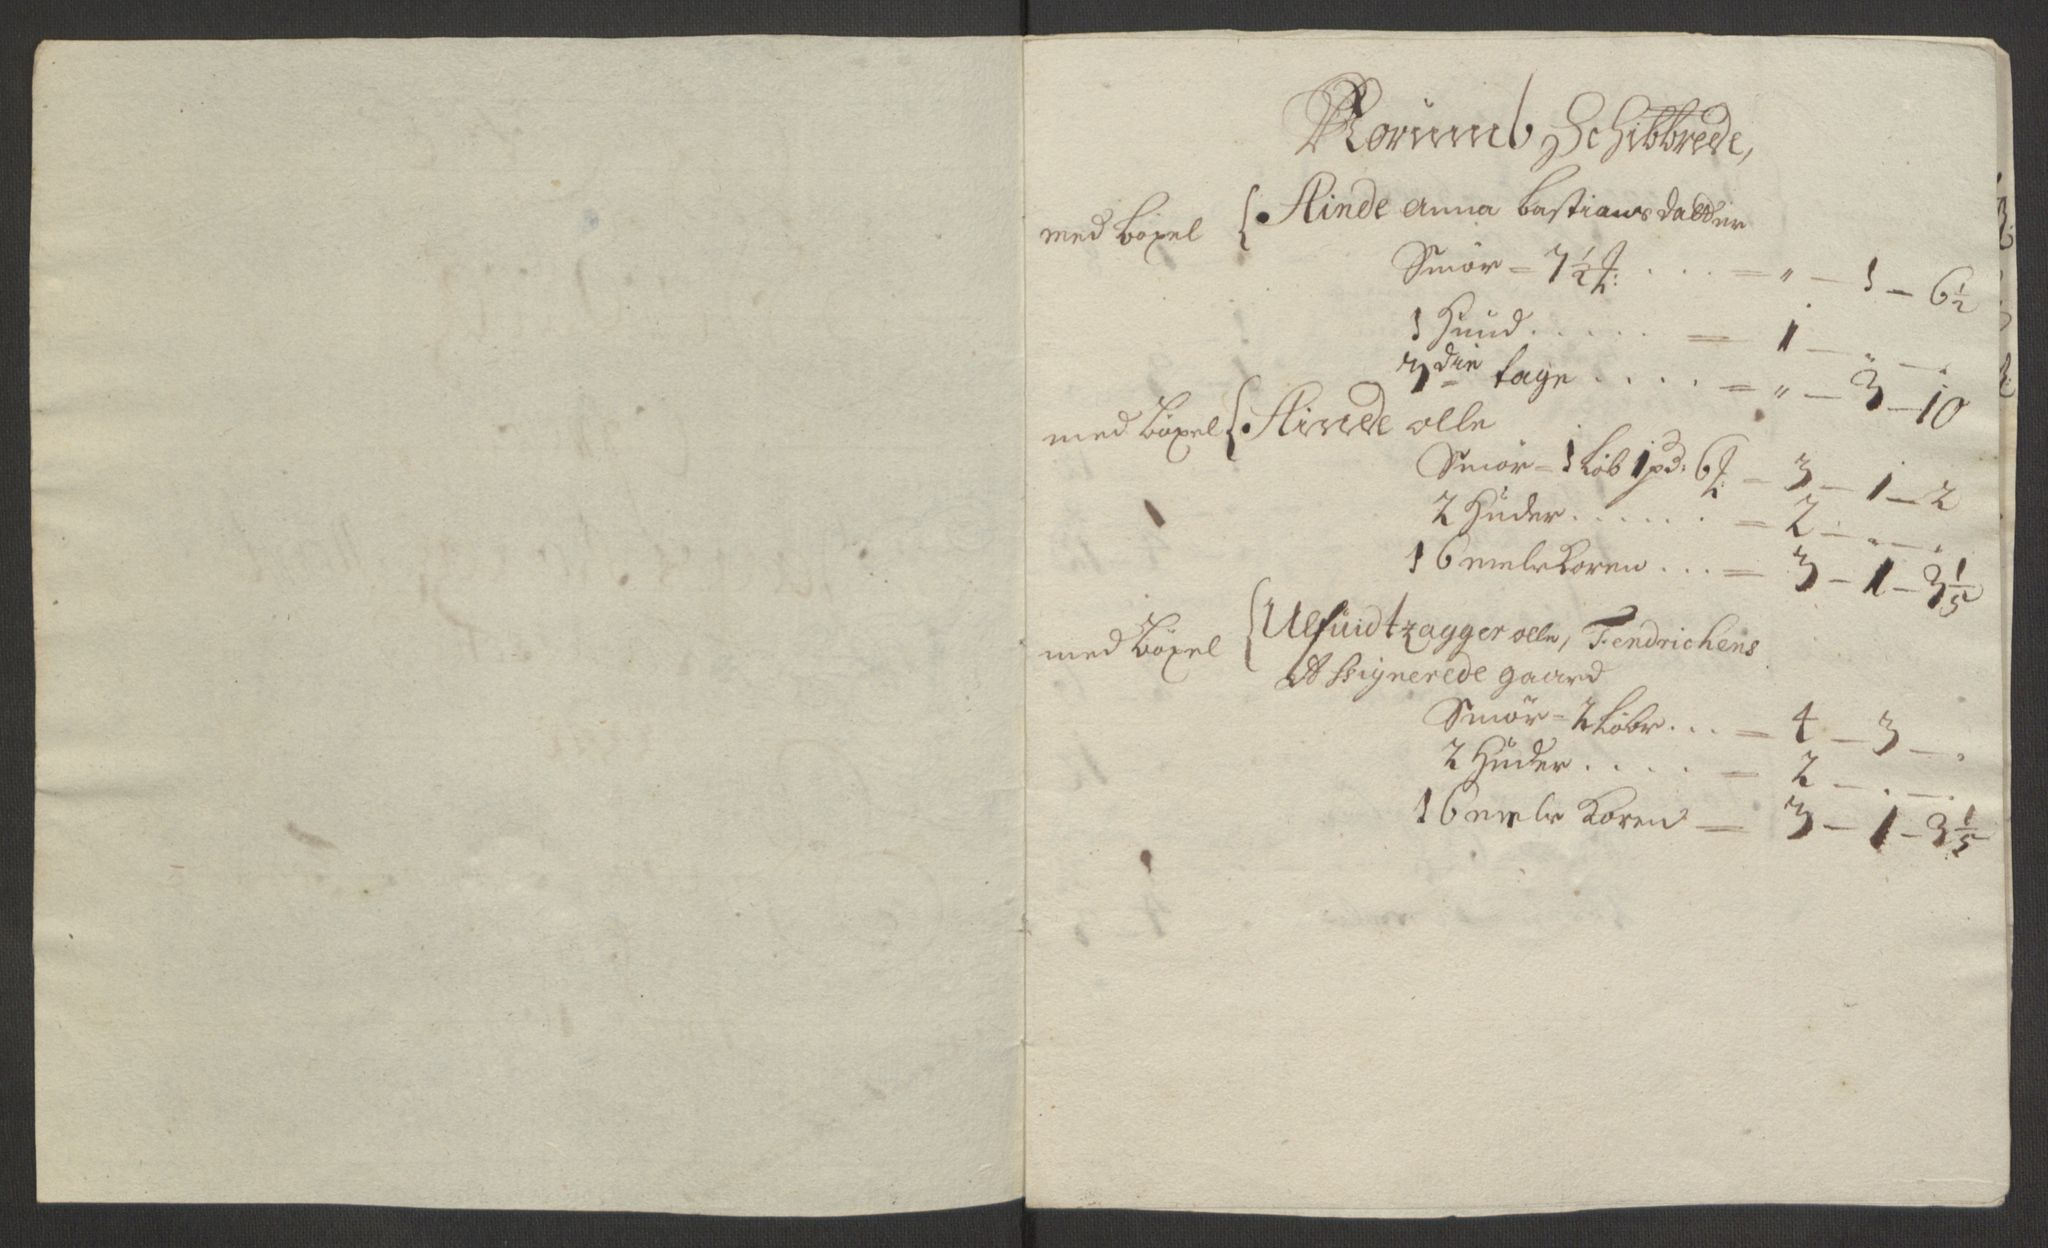 Rorumb Schibbrede,
med böxel { Hinde Anna bastiansdatter
Smör = 7½ ℔: . . . = " — 1 — 6½
1 Huud . . . . . = 1 — " — .
3die tage . . . . = " — 3 — 10
med böxel { Hinde olle
Smör = 1 Løb 1 pd: 6 ℔: = 3 — 1 — 2
2 Huder . . . . . . = 2 — " — "
16 mele Koren . . . = 3 — 1 — 3 1/5
med böxel { Ulfuidtzagger olle, Fendrichens
Assignerede gaard
Smör = 2 Løber . . . = 4 — 3 — "
2 Huder . . . . = 2 — . — .
16 mele Koren = 3 — 1 — 3 1/5